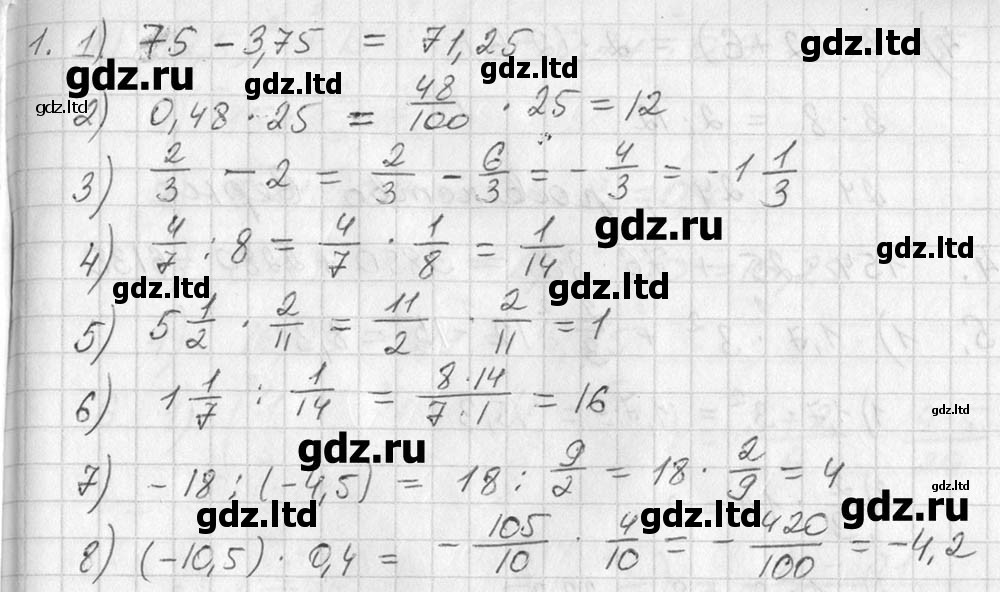 1. 1) 75 - 3,75 = 71,25
gdz.ru gdz.ltd gdz.ltd gdz.ltd
gdz.ltd
2) 0,48 · 25 = 48/100 · 25 = 12
3) 2/3 - 2 = 2/3 - 6/3 = - 4/3 = - 1 1/3
gdz.ru gdz.ltd
4) 4/7 : 8 = 4/7 · 1/8 = 1/14
gdz.ltd gdz.ltd
5) 5 1/2 · 2/11 = 11/2 · 2/11 = 1
6) 1 1/7 : 1/14 = 8·14/7·1 = 16
gdz.ltd
gdz.ru
7) - 18 : (-4,5) = 18 : 9/2 = 18 · 2/9 = 4
gdz.ltd
gdz.ltd gdz.ltd gdz.ru
8) (-10,5) · 0,4 = - 105/10 · 4/10 = - 420/100 = -4,2
gdz.ltd